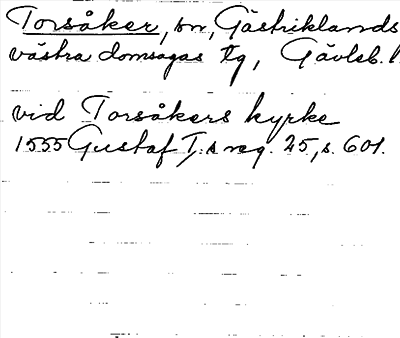 Torsåker, sn, Gästriklands
västra domsagas tg, Gävleb. l
vid Torsåkers kyrke
1555 Gustaf I:s reg. 25, s. 601.